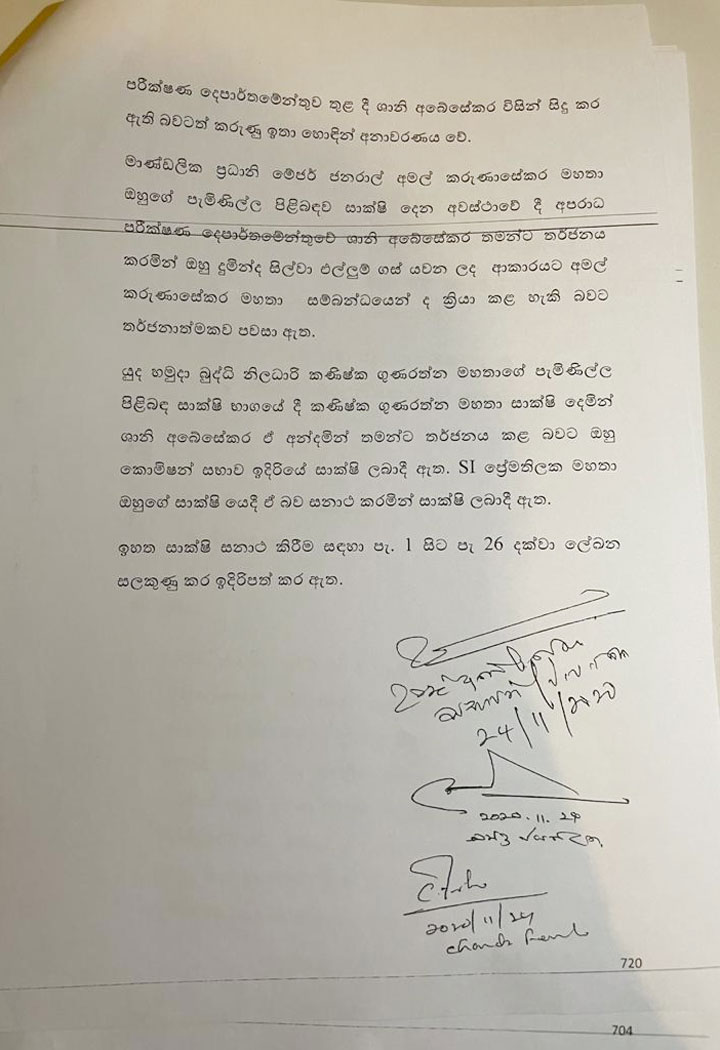 පරීක්ෂණ දෙපාර්තමේන්තුව තුළ දී ශානි අබේසේකර විසින් සිදු කර
ඇති බවටත් කරුණු ඉතා හොඳින් අනාවරණය වේ.
මාණ්ඩලික ප්‍රධානි මේජර් ජනරාල් අමල් කරුණාසේකර මහතා
ඔහුගේ පැමිණිල්ල පිළිබඳව සාක්ෂි දෙන අවස්ථාවේ දී අපරාධ
පරීක්ෂණ දෙපාර්තමේන්තුවේ ශානි අබේසේකර තමන්ට තර්ජනය
කරමින් ඔහු දුමින්ද සිල්වා එල්ලුම් ගස් යවන ලද ආකාරයට අමල්
කරුණාසේකර මහතා සම්බන්ධයෙන් ද ක්‍රියා කළ හැකි බවට
තර්ජනාත්මකව පවසා ඇත.
යුද හමුදා බුද්ධි නිලධාරි කණිෂ්ක ගුණරත්න මහතාගේ පැමිණිල්ල
පිළිබඳ සාක්ෂි භාගයේ දී කණිෂ්ක ගුණරත්න මහතා සාක්ෂි දෙමින්
ශානි අබේසේකර ඒ අන්දමින් තමන්ට තර්ජනය කළ බවට ඔහු
කොමිෂන් සභාව ඉදිරියේ සාක්ෂි ලබාදී ඇත. SI ප්‍රේමතිලක මහතා
ඔහුගේ සාක්ෂි යෙදී ඒ බව සනාථ කරමින් සාක්ෂි ලබාදී ඇත.
ඉහත සාක්ෂි සනාථ කිරීම සඳහා පැ. 1 සිට පැ 26 දක්වා ලේඛන
සලකුණු කර ඉදිරිපත් කර ඇත.
24/11/2020
2020.11.24
2020/11/24
720
704